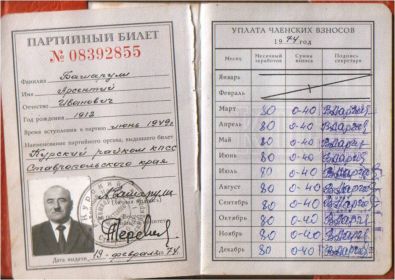 ПАРТИЙНЫЙ БИЛЕТ
№ 08392855
Фамилия
Имя Арсентий
Отчество Иванович
Год рождения 1912
Время вступления в партию июнь 1942г.
Наименование партийного органа, выдавшего билет
Курский райком КПСС
Ставропольского края
Дата выдачи 19 февраля 74
УПЛАТА ЧЛЕНСКИХ ВЗНОСОВ
1974 год
Месяц Месячный заработок Сумма взноса Подпись секретаря
Январь
Февраль
Март 80 0-40
Апрель 80 0-40
Май 80 0-40
Июнь 80 0-40
Июль 80 0-40
Август 80 0-40
Сентябрь 80 0-40
Октябрь 80 0-40
Ноябрь 80 0-40
Декабрь 80 0-40